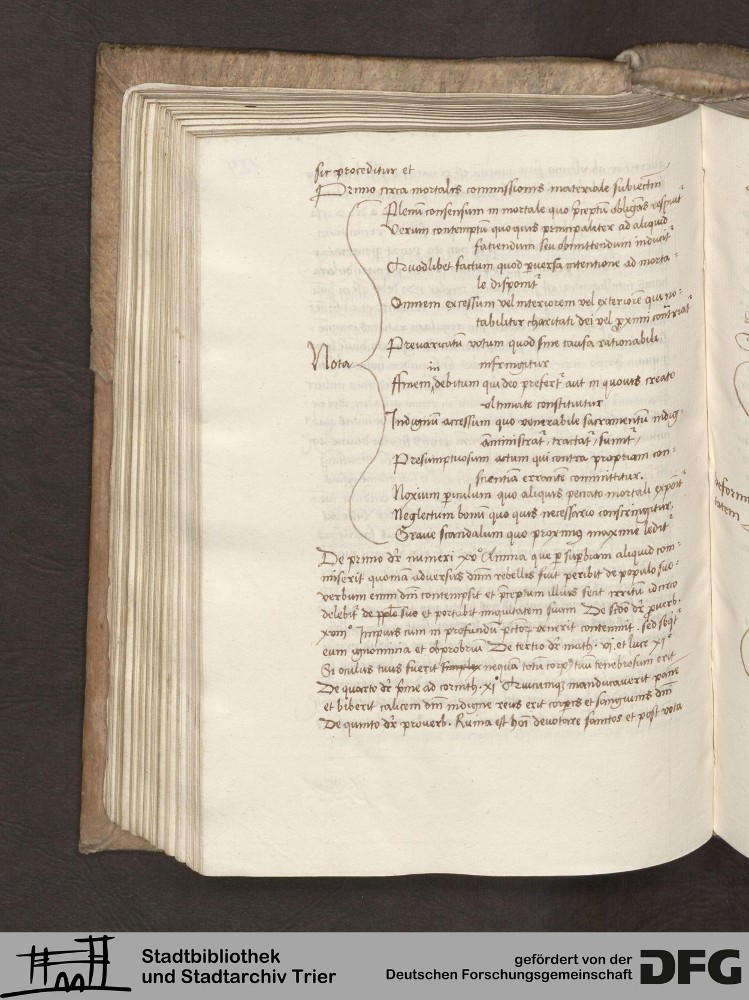 sic proceditur et
Primo circa mortalis commissionis materiale subiectū
Plenū consensum in mortale quo p̄ceptū obligās respuit᷑
Verum contemptū quo quis principaliter ad aliquid
faciendum seu obmittendum inducit᷑
Quodlibet factum quod ꝑuersa intentione ad morta-
le disponit᷑
Omnem excessum vel interiorem vel exteriorē qui no-
tabiliter charitati dei vel ꝓximi cōtrariat᷑
Prevaricatū votum quod sine causa rationabili
Nota
infringitur
in
ffinem debitum qui deo prefert᷑ aut in quouis creato
vltimate constituitur
Indignū accessum quo venerabile sacramentū indig-
administrat᷑, tractat᷑, sumit᷑,
Presumptuosum actum qui contra propriam con-
scientiā errantē committitur.
Noxium ꝑiculum quo aliquis peccato mortali exponit᷑
Neglectum bonū quo quis necessario confringitur,
Graue scandalum quo proximꝰ maxime ledit᷑
De primo dr̄ numeri xv° Anima que ꝑ suꝑbiam aliquid com-
miserit quoniā adversus dn̄m rebellis fuit peribit de populo suo
verbum enim dn̄i contempsit et p̄ceptum illius fecit irritū idcirco
delebit᷑ de pplo suo et portabit iniquitatem suam De scd̄o dr̄ ꝓuerb.
xviii° Impius cum in profundū pctōꝝ venerit contemnit. sed seqt᷑
eum ignominia et obprobriū De tertio dr̄ math. vi. et luce xi°
Si oculus tuus fuerit simplex nequā totū corpꝰ tuū tenebrosum erit
De quarto dr̄ p̄me ad corinth. xi° Quicumqꝫ manducauerit panē
et biberit calicem dn̄i indigne reus erit corporis et sanguinis dn̄i
De quinto dr̄ proverb. Ruina est hōi devotare sanctos et post vota
Stadtbibliothek
und Stadtarchiv Trier
gefördert von der
Deutschen Forschungsgemeinschaft
DFG